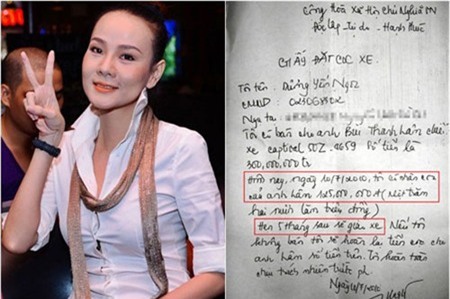 Cộng Hòa Xã Hội Chủ Nghĩa VN
Độc Lập Tự do - Hạnh Phúc
GIẤY ĐẶT CỌC XE
Tôi tên: Dương Yến Ngọc
CMND:
Ngụ tại:
Tôi có bán cho anh Bùi Thanh Hân chiếc
xe captiva 50Z. 4659 Số tiền là
360,000,000 tr
Hôm nay, ngày 10/7/2010, tôi có nhận cọc
của anh Hân 125,000,000đ (Một trăm
hai mươi lăm triệu đồng)
Hẹn 5 tháng sau sẽ giao xe. Nếu tôi
không bán tôi sẽ hoàn lại tiền cọc cho
anh Hân số tiền trên. Tôi hoàn toàn
chịu trách nhiệm